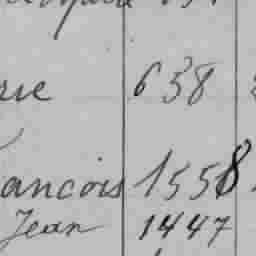 rie 638
ancois 1558
Jean 1447